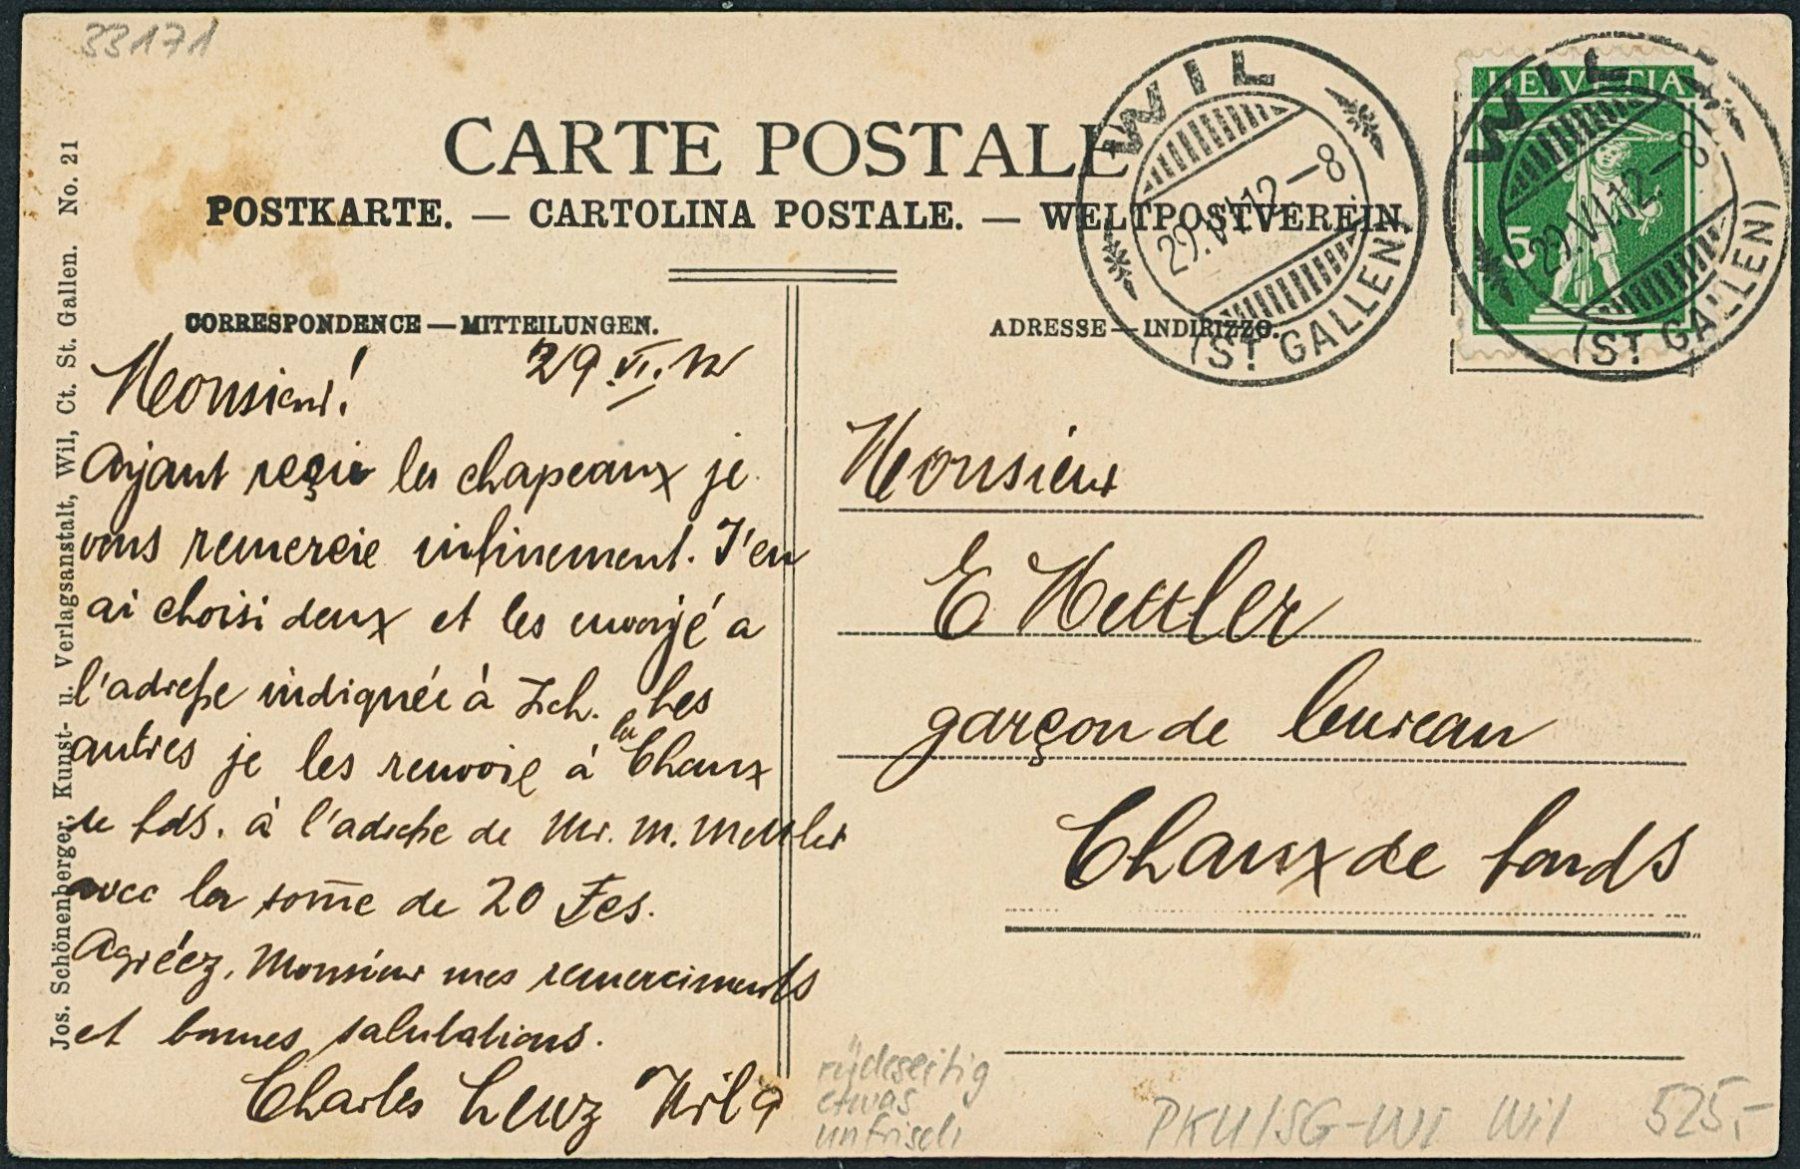 33171
CARTE POSTALE
POSTKARTE. — CARTOLINA POSTALE. — WELTPOSTVEREIN.
CORRESPONDENCE — MITTEILUNGEN.
ADRESSE — INDIRIZZO.
Jos. Schönenberger, Kunst- u. Verlagsanstalt, Wil, Ct. St. Gallen. No. 21
WIL
29.VI.12–8
(ST. GALLEN)
HELVETIA
5
WIL
29.VI.12–8
(ST. GALLEN)
29 VI. 12
Monsieur!
Ayant reçu les chapeaux je
vous remercie infinement. J'en
ai choisi deux et les envoyé a
l'adresse indiquée à Zch. Les
autres je les renvoie à la Chaux
de fds. à l'adresse de Mr. M. Mettler
avec la som̅e de 20 Fcs.
Agréez, Monsieur mes remerciments
et bonnes salutations.
Charles Lenz Wil
Monsieur
E Mettler
garçon de bureau
Chaux de fonds
rückseitig
etwas
unfrisch
PKU/SG-WI Wil 525,-